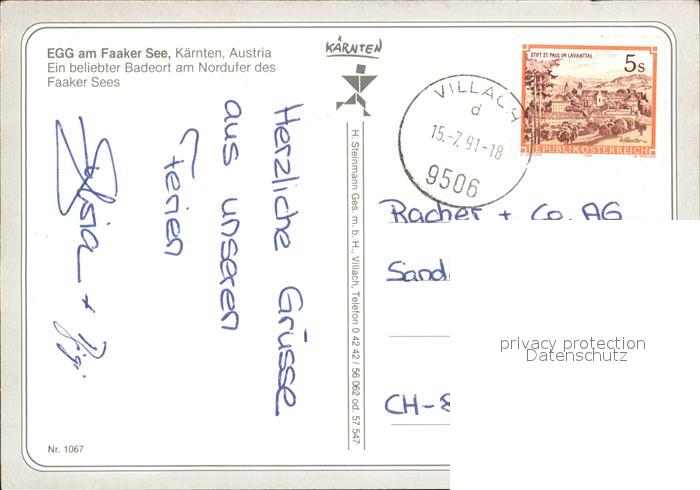 EGG am Faaker See, Kärnten, Austria
Ein beliebter Badeort am Nordufer des
Faaker Sees
KÄRNTEN
STIFT ST. PAUL IM LAVANTTAL
5s
REPUBLIK ÖSTERREICH
VILLACH
d
15.-7.91-18
9506
Herzliche Grüsse
aus unseren
Ferien
H. Steinmann Ges. m. b. H., Villach, Telefon 0 42 42 / 56 062 od. 57 547
Racher + Co. AG
Sand
CH-8
privacy protection
Datenschutz
Nr. 1067